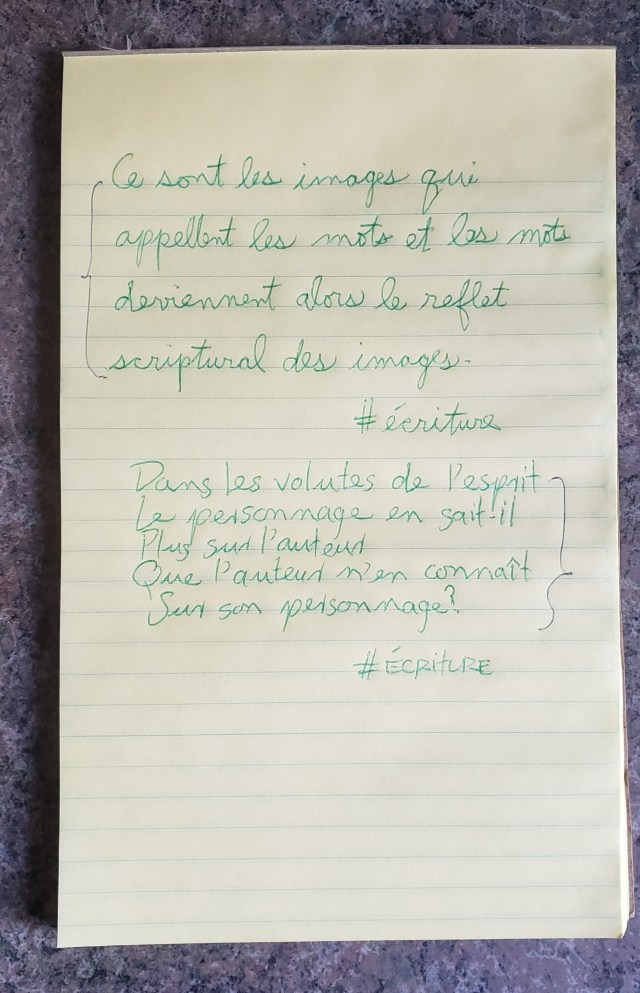 Ce sont les images qui
appellent les mots et les mots
deviennent alors le reflet
scriptural des images.
#écriture
Dans les volutes de l'esprit
Le personnage en sait-il
Plus sur l'auteur
Que l'auteur n'en connaît
Sur son personnage?
#ÉCRITURE